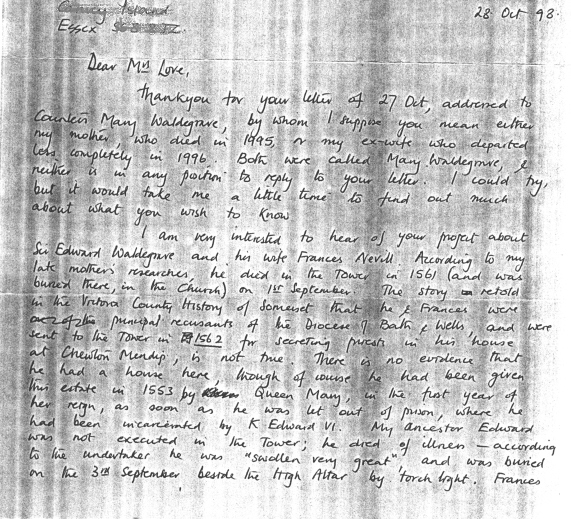 Canvey Island
Essex
28 Oct 98.
Dear Mrs Love,
Thankyou for your letter of 27 Oct, addressed to
Countess Mary Waldegrave, by whom I suppose you mean either
my mother, who died in 1995, or my ex-wife who departed
less completely in 1996. Both were called Mary Waldegrave, &
neither is in any position to reply to your letter. I could try,
but it would take me a little time to find out much
about what you wish to know
I am very intersted to hear of your project about
Sir Edward Waldegrave and his wife Frances Nevill. According to my
late mothers researches, he died in the Tower in 1561 (and was
buried there, in the Church) on 1st September. The story retold
in the Victoria County History of Somerset that he & Frances were
principal recusants of the Diocese of Bath & Wells, and were
sent to the Tower in 1562 for secreting priests in his house
at Chewton Mendip, is not true. There is no evidence that
he had a house here, though of course he had been given
this estate in 1553 by Queen Mary, in the first year of
her reign, as soon as he was let out of prison, where he
had been incarcerated by K Edward VI. My ancestor Edward
was not executed in the Tower; he died of illness – according
to the undertaker he was "swollen very great", and was buried
on the 3rd September beside the High Altar by torch light. Frances